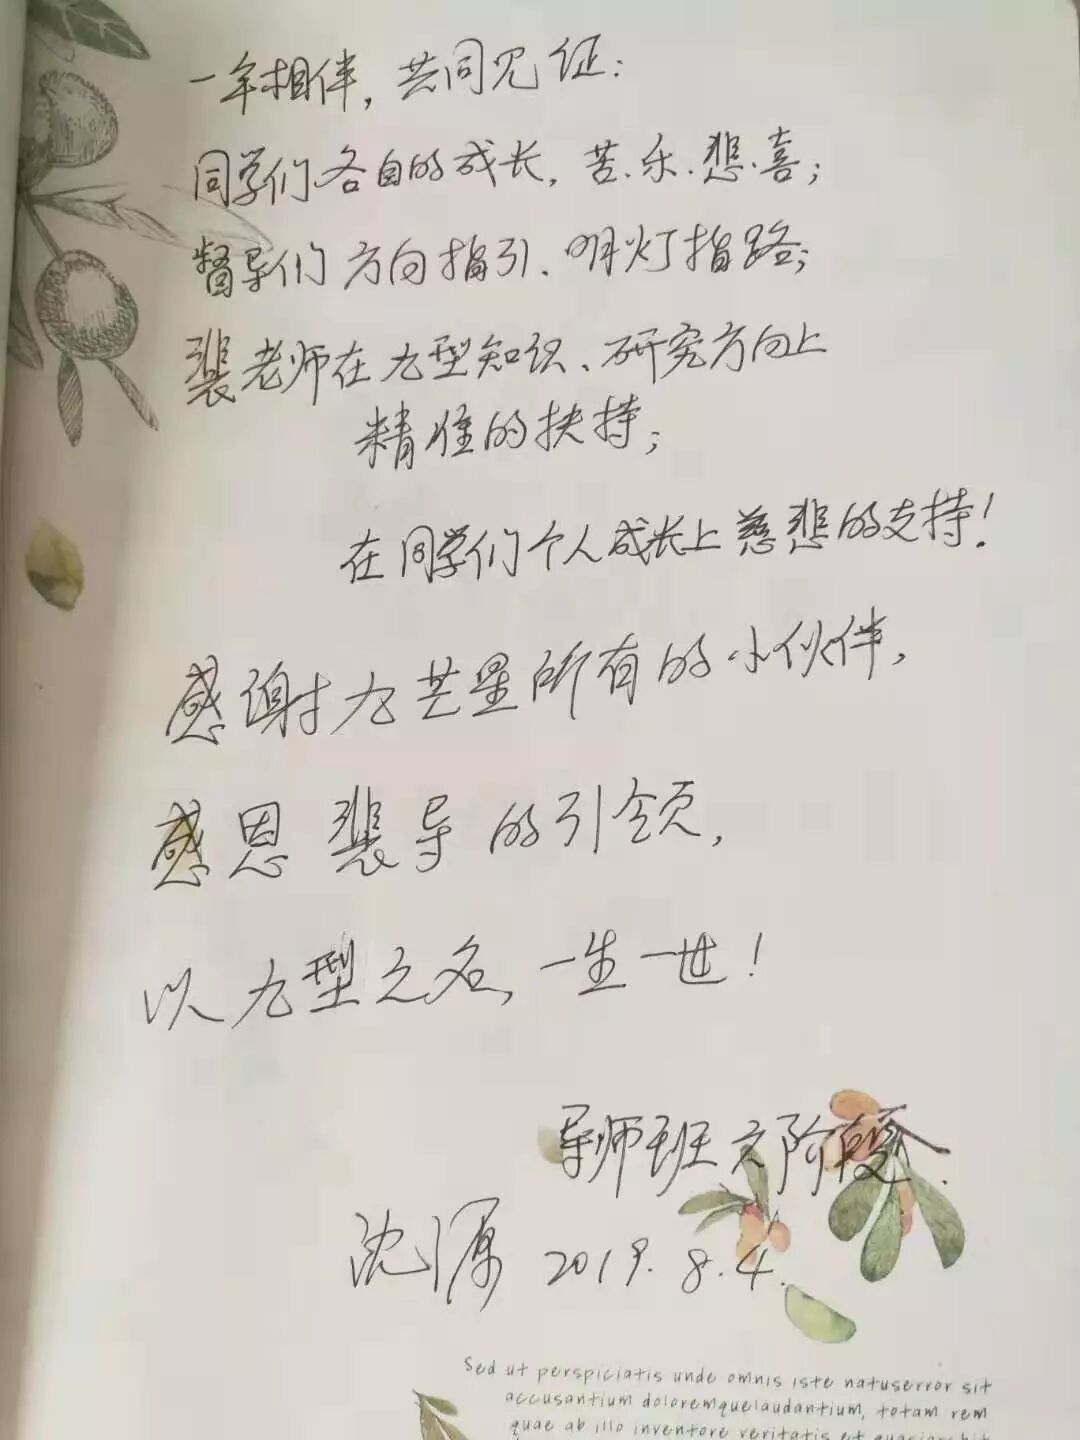 一年相伴，共同见证：
同学们各自的成长，苦.乐.悲.喜；
督导们方向指引、明灯指路；
裴老师在九型知识、研究方向上
精准的扶持；
在同学们个人成长上慈悲的支持！
感谢九芒星所有的小伙伴，
感恩裴导的引领，
以九型之名，一生一世！
导师班六阶段.
沈源 2019.8.4.
Sed ut perspiciatis unde omnis iste natuserror sit
accusantium doloremquelaudantium, totam rem
quae ab illo inventore veritatis et